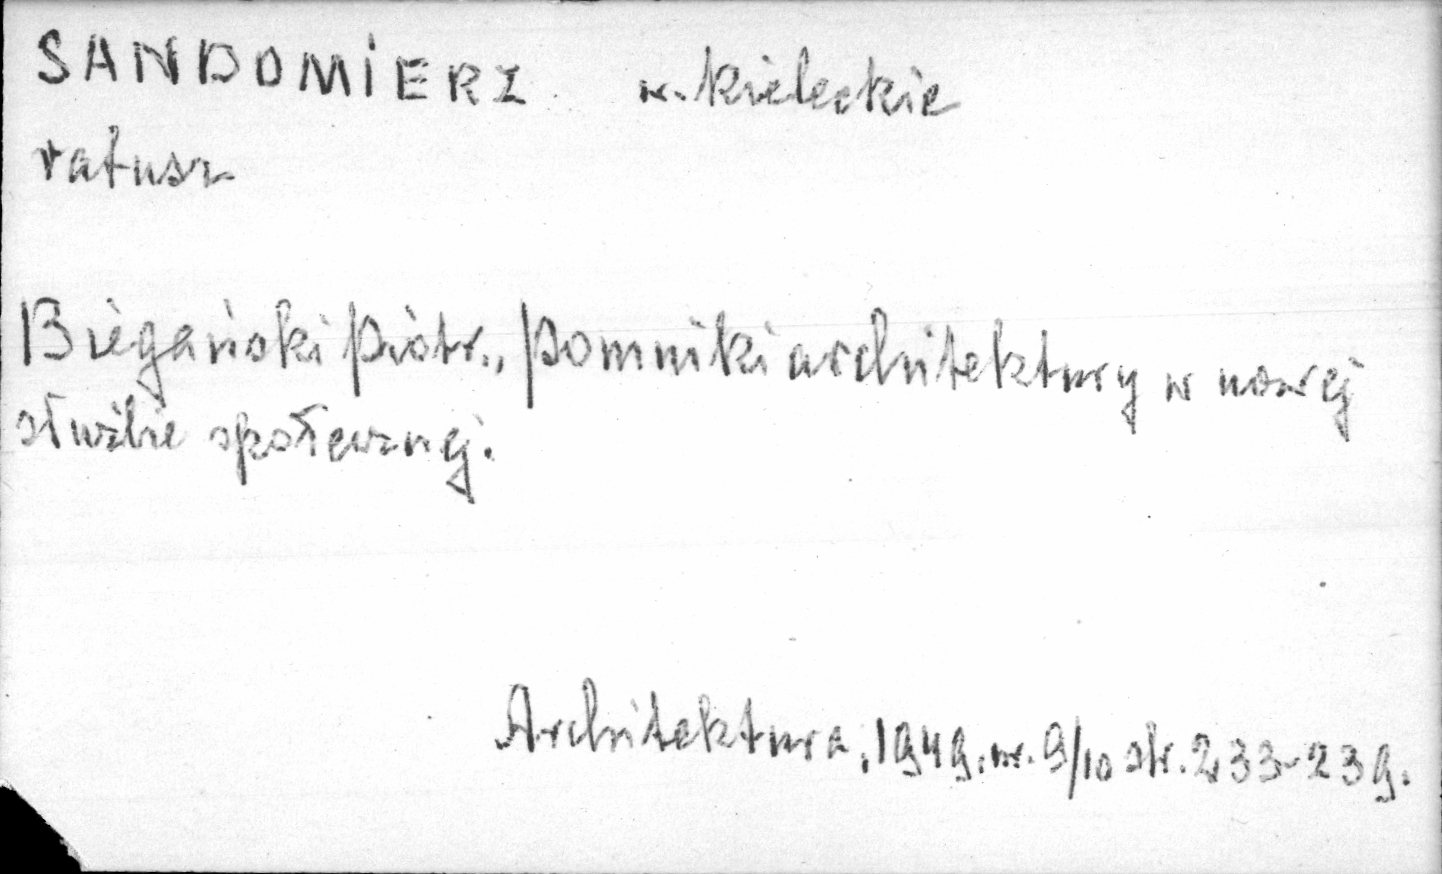 SANDOMIERZ w. kieleckie
ratusz
Biegański Piotr., Pomniki architektury w nowej
służbie społecznej.
Architektura, 1949. nr. 9/10 str. 233-239.